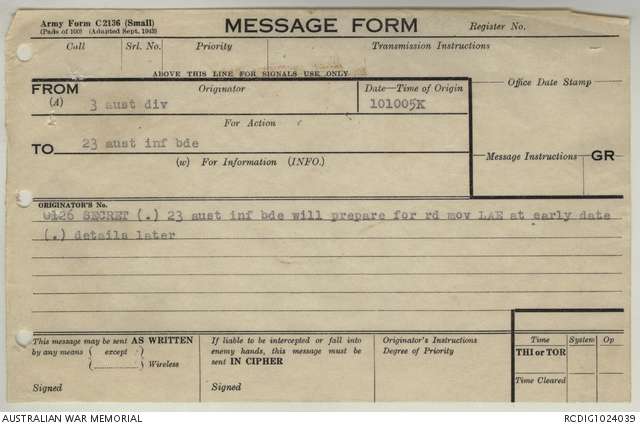 Army Form C2136 (Small)
(Pads of 100) (Adapted Sept. 1943)
MESSAGE FORM
Register No.
Call
Srl. No.
Priority
Transmission Instructions
ABOVE THIS LINE FOR SIGNALS USE ONLY
FROM
(A)
Originator
3 aust div
Date—Time of Origin
101005K
Office Date Stamp
For Action
TO
23 aust inf bde
(w) For Information (INFO.)
Message Instructions
GR
ORIGINATOR'S No.
SECRET (.) 23 aust inf bde will prepare for rd mov LAE at early date
(.) details later
This message may be sent AS WRITTEN
by any means ( except )
Wireless
Signed
If liable to be intercepted or fall into
enemy hands, this message must be
sent IN CIPHER
Signed
Originator's Instructions
Degree of Priority
Time
System
Op
THI or TOR
Time Cleared
AUSTRALIAN WAR MEMORIAL
RCDIG1024039